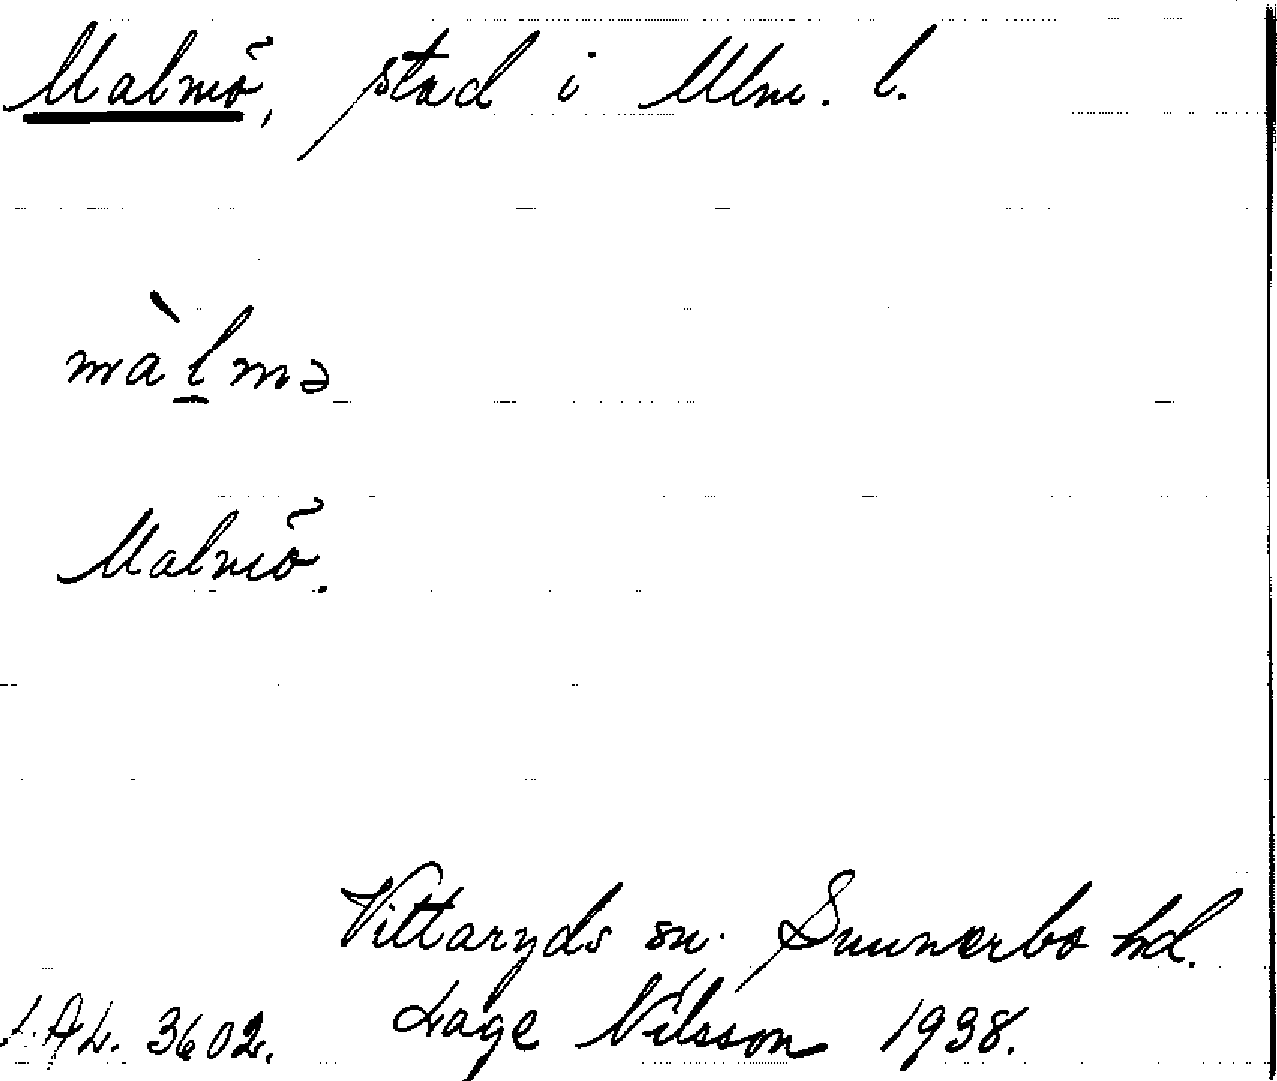 Malmö, stad i Mlm. l.
màl̲mə
Malmö.
Vittaryds sn. Sunnerbo hd.
L.A.L. 3602. Lage Nilsson 1938.